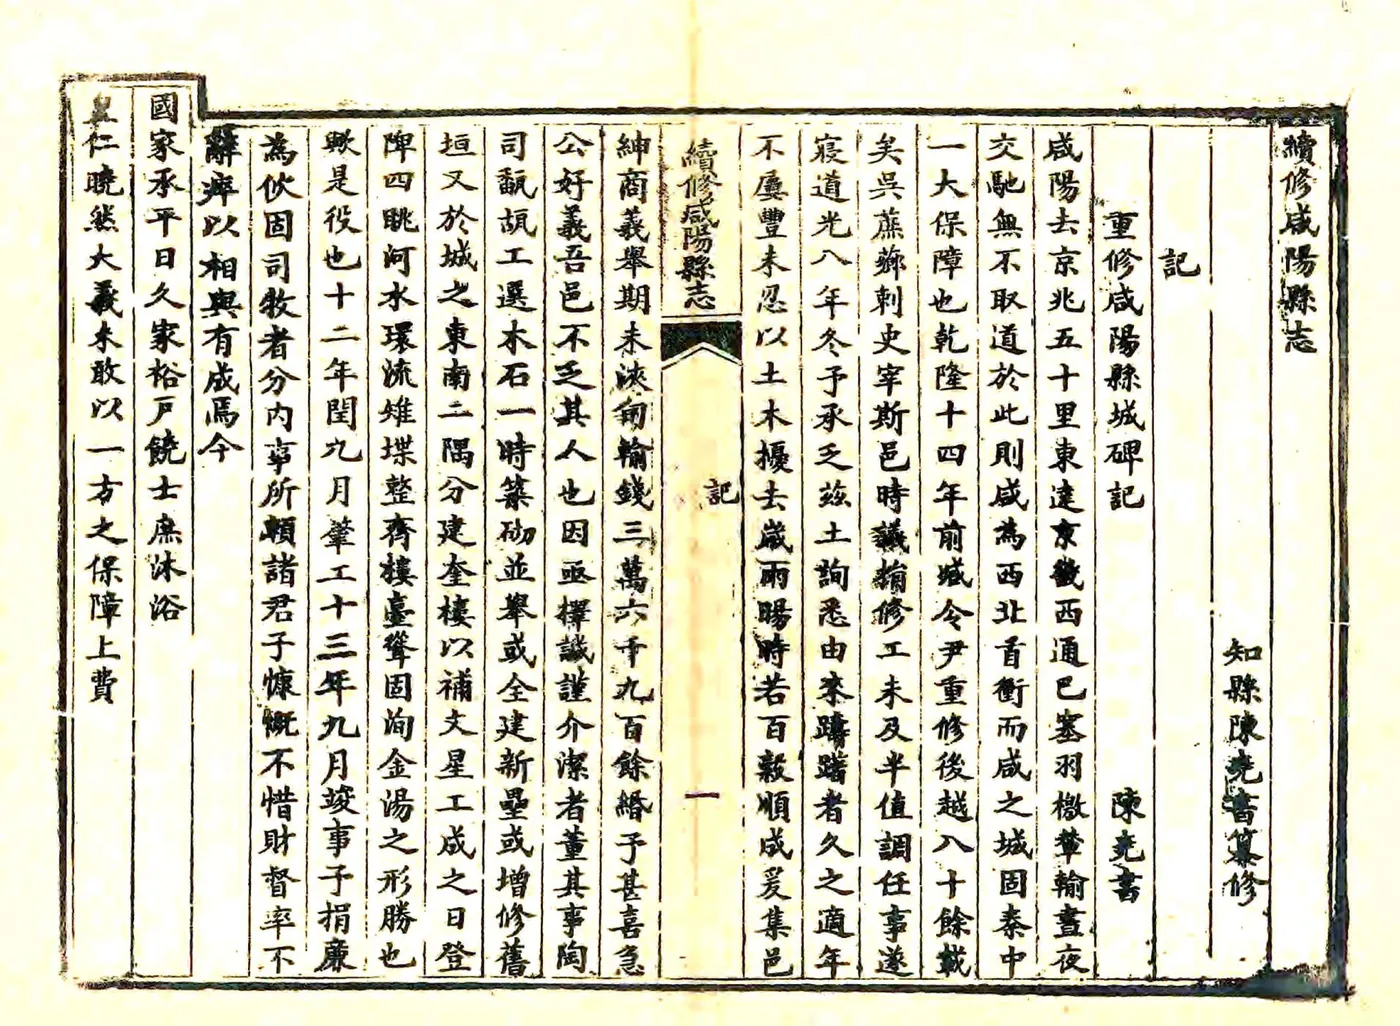 續修咸陽縣志
知縣陳堯書纂修
記
重修咸陽縣城碑記
陳堯書
咸陽去京兆五十里東達京畿西通巴塞羽檄輦輸晝夜
交馳無不取道於此則咸為西北首衝而咸之城固秦中
一大保障也乾隆十四年前城令尹重修後越八十餘載
矣吳蔗薌刺史宰斯邑時議捐修工未及半值調任事遂
寢道光八年冬予承乏茲土詢悉由來躊躇者久之適年
不屢豐未忍以土木擾去歲雨暘時若百穀順成爰集邑
續修咸陽縣志
記
一
紳商義舉期未浹旬輸錢三萬六千九百餘緡予甚喜急
公好義吾邑不乏其人也因亟擇誠謹介潔者董其事陶
司瓻瓳工選木石一時築砌並舉或全建新壘或增修舊
垣又於城之東南二隅分建奎樓以補文星工成之日登
陴四眺河水環流雉堞整齊樓臺聳固洵金湯之形勝也
歟是役也十二年閏九月肇工十三年九月竣事予捐廉
為佽固司牧者分內事所賴諸君子慷慨不惜財督率不
辭瘁以相與有成焉今
國家承平日久家裕戶饒士庶沐浴
皇仁曉然大義未敢以一方之保障上費